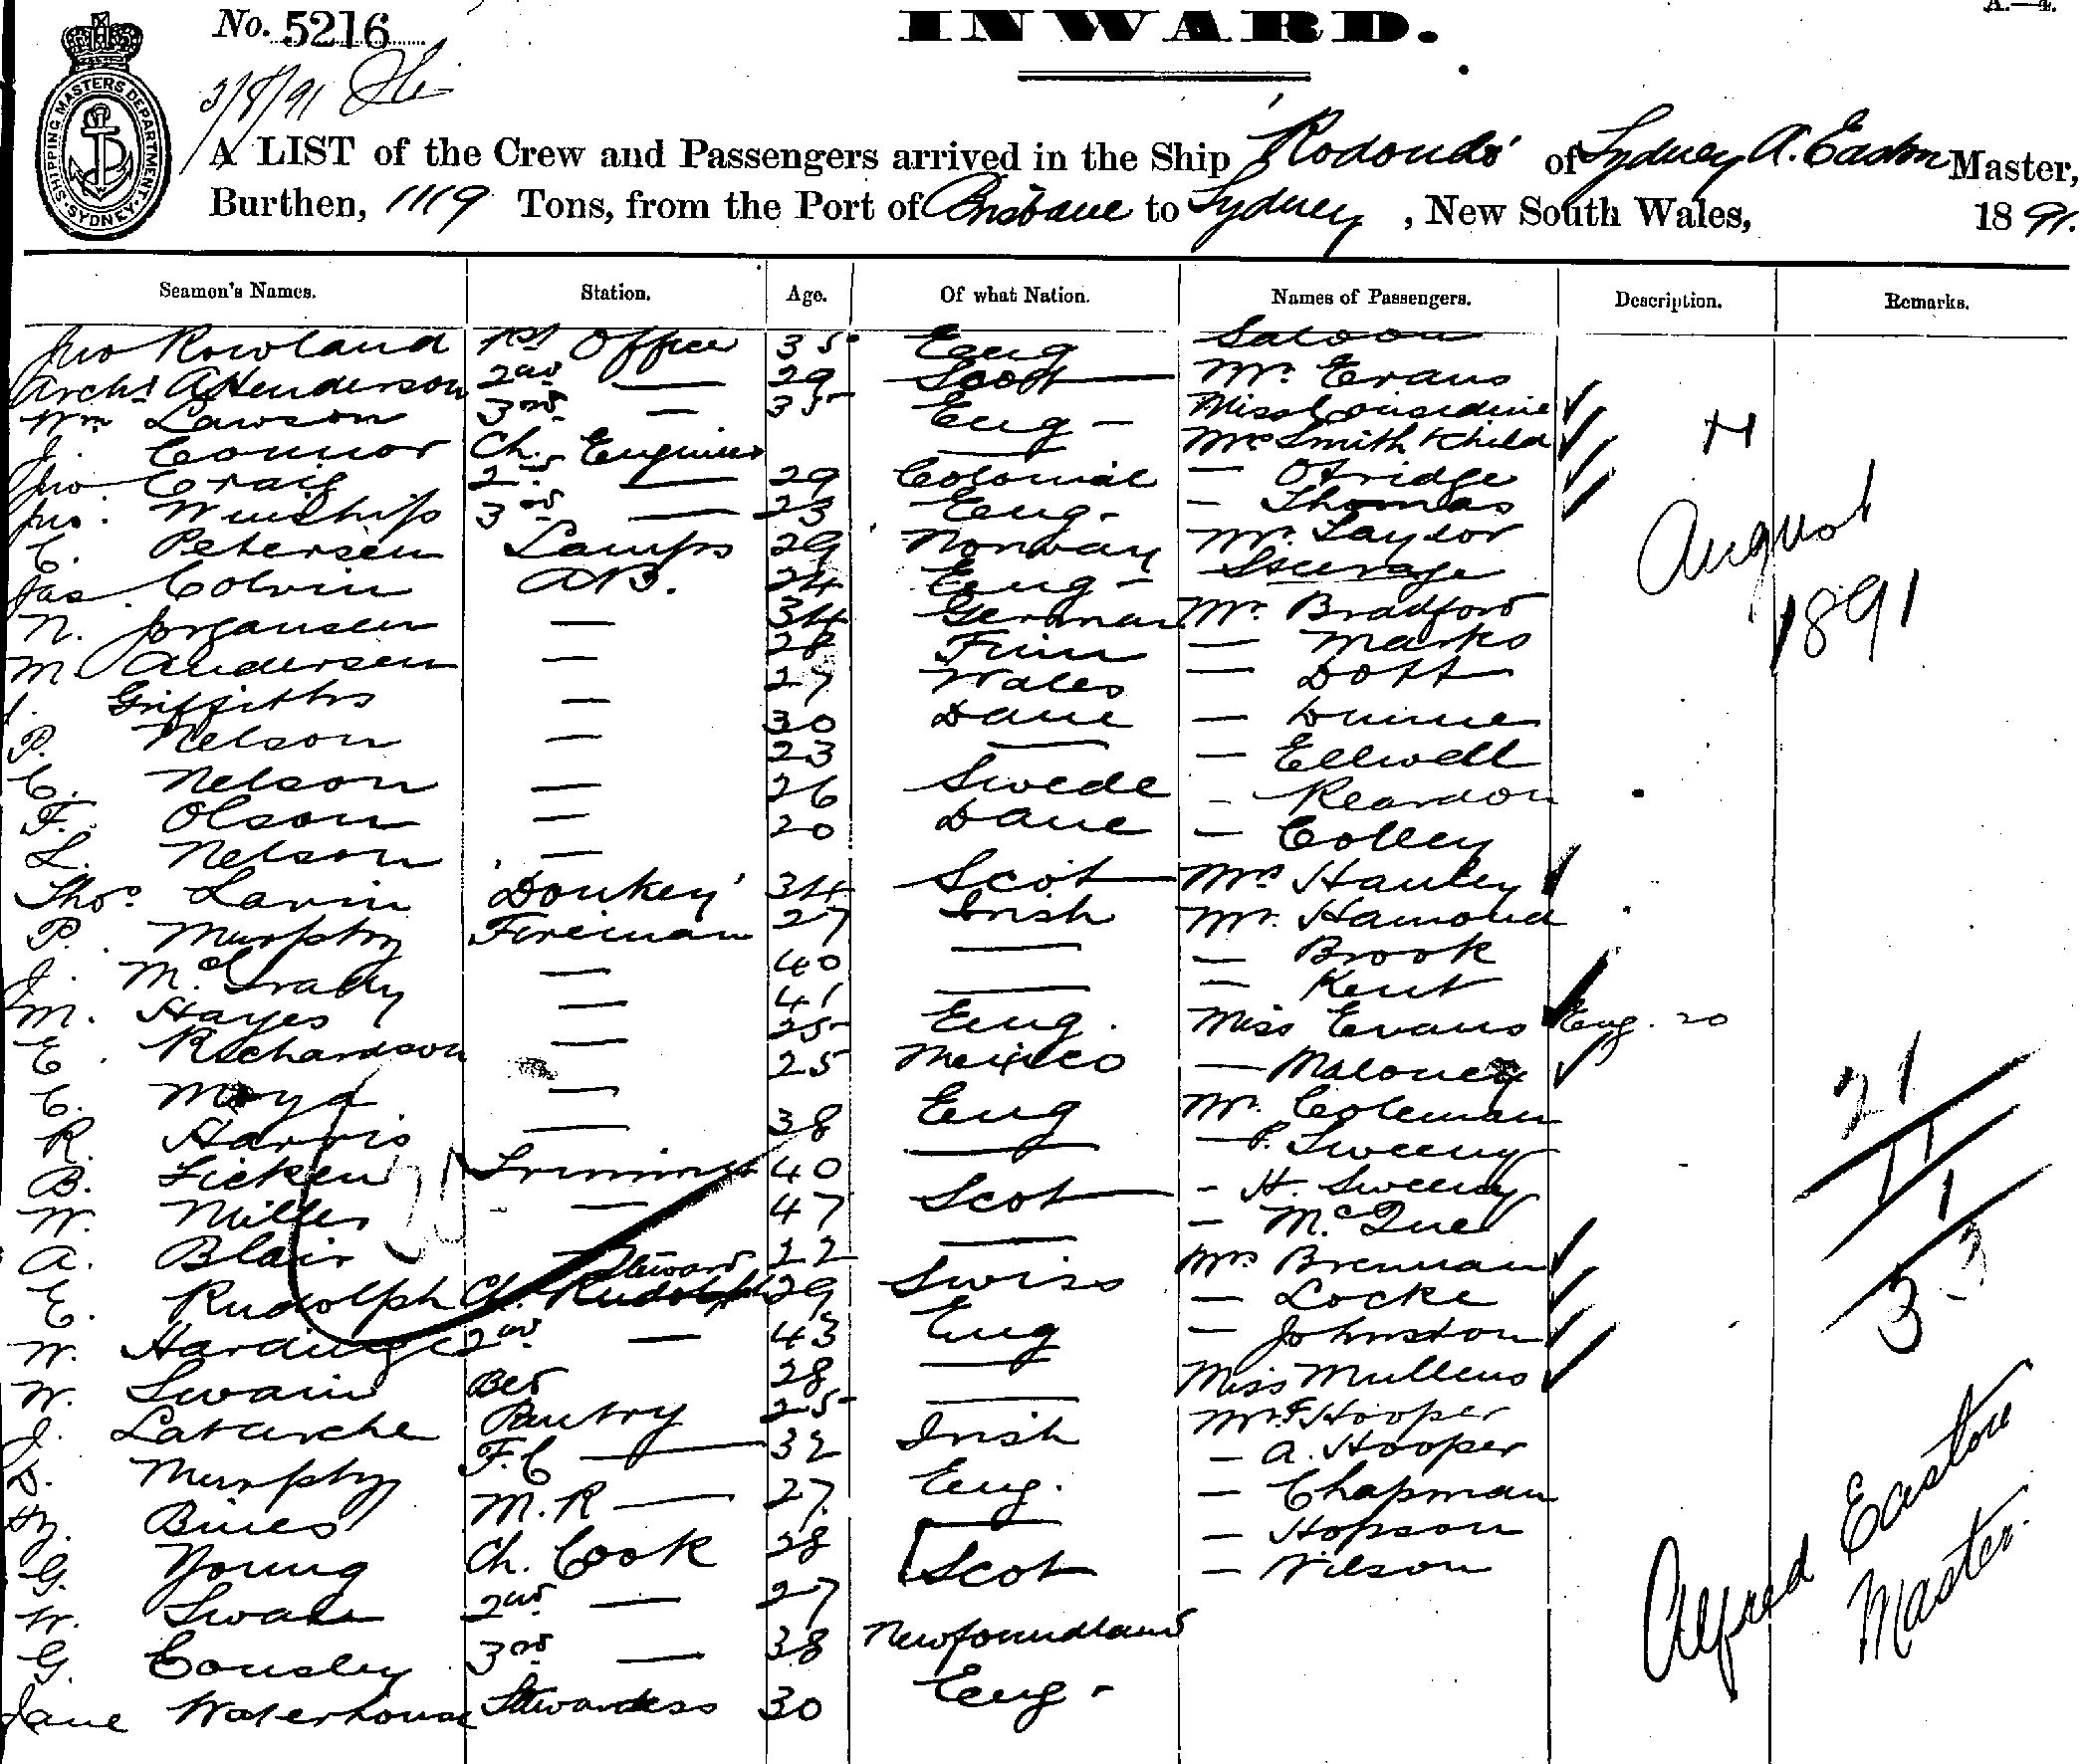 No. 5216
A.—4.
INWARD.
3/8/91
SHIPPING MASTERS DEPARTMENT SYDNEY
A LIST of the Crew and Passengers arrived in the Ship 'Rodondo' of Sydney A. Easton Master,
Burthen, 1119 Tons, from the Port of Brisbane to Sydney, New South Wales, 1891.
Seamen's Names. Station. Age. Of what Nation. Names of Passengers. Description. Remarks.
Jno Rowland 1st Officer 35 Eng Saloon
Archd A Henderson 2nd — 29 Scot — Mr. Evans
Wm Lawson 3rd — 35 Eng — Miss
J. Connor Ch. Engineer — Mrs Smith & Child
Jno. Craig 2nd — 29 Colonial — Otridge
Jno. Winship 3rd — 23 Eng - — Thomas
C. Petersen Lamps 29 Norway Mr. Taylor
Jas. Colvin AB. 24 Eng - Steerage
N. Jorgansen — 34 German Mr. Bradford
M. Andersen — 28 Finn — Marks
Griffiths — 27 Wales — Dott
P. Nelson — 30 Dane — Dunne
C. Nelson — 23 — — Ellwell
F. Olson — 26 Swede — Reardon
L. Nelson — 20 Dane — Colley
Thos Lavin 'Donkey' 34 Scot — Mrs Hanley
P. Murphy Fireman 27 Irish Mr. Hamond
J. McGrady — 40 — — Brook
M. Hayes — 41 — — Kent
E. Richardson — 25 Eng. Miss Evans Eng. 20
C. Moya — 25 Mexico — Maloney
R. Harris — 38 Eng Mr. Coleman
B. Ficken Trimmer 40 — — P. Sweeny
W. Miller — 47 Scot — - H. Sweeny
A. Blair — 22 — — McQue
E. Rudolph Ch. Rudolph Steward 29 Swiss Mrs Brennan
W. Hardinge 2nd — 43 Eng — Locke
W. Swain Bed 28 — — Johnston
J. Latarche Pantry 25 — Miss Mullens
D. Murphy F.C — 32 Irish Mr. F Hooper
Bines M.R — 27 Eng. — A. Hooper
G. Young Ch. Cook 28 — — Chapman
W. Swan 2nd — 27 Scot — Hopson
G. Cousley 3rd — 38 Newfoundland — Wilson
Jane Waterhouse Stewardess 30 Eng -
August
1891
21
11
1
33
Alfred Easton
Master.